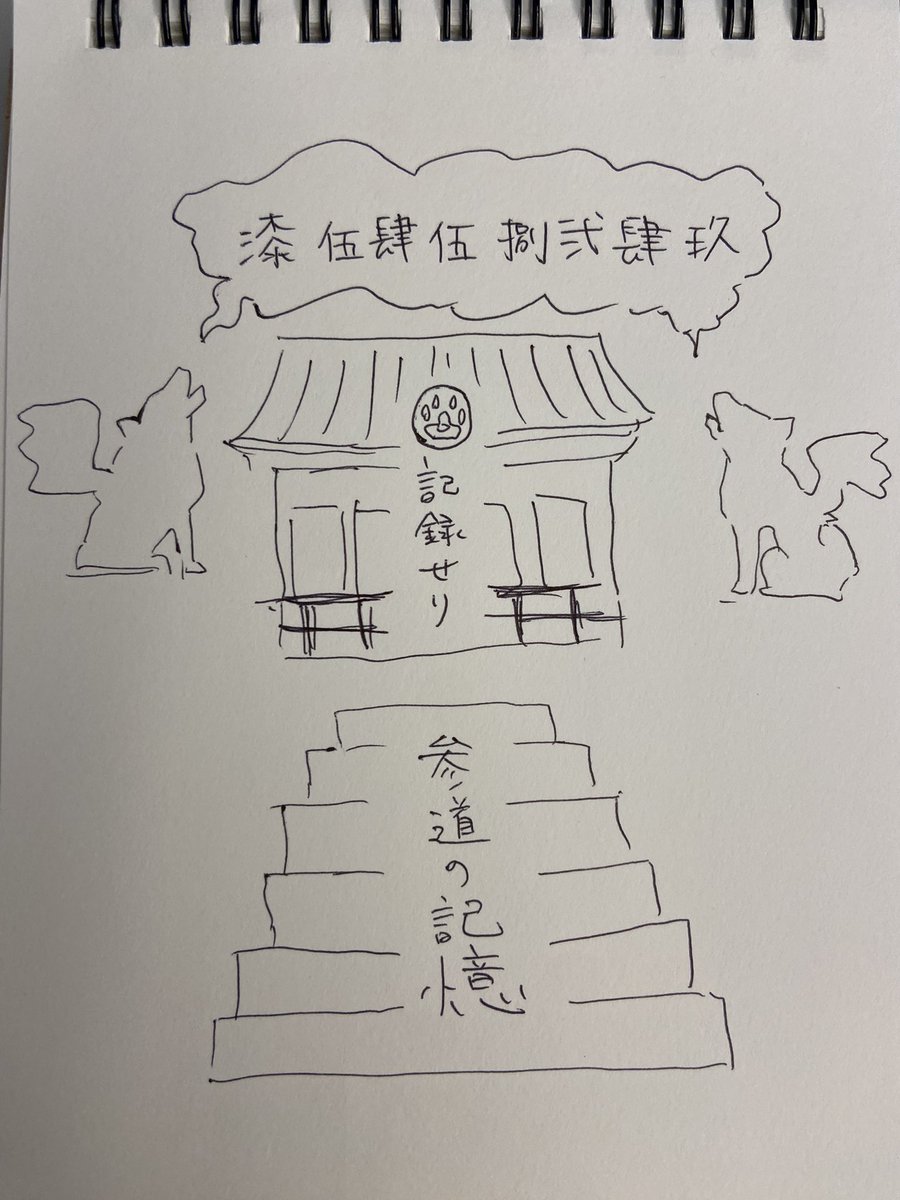 漆 伍肆伍 捌弐肆玖
記録せり
参道の記憶